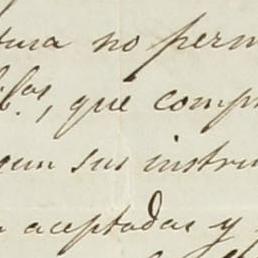 tura no perm
que comp
sus instru
aceptadas y